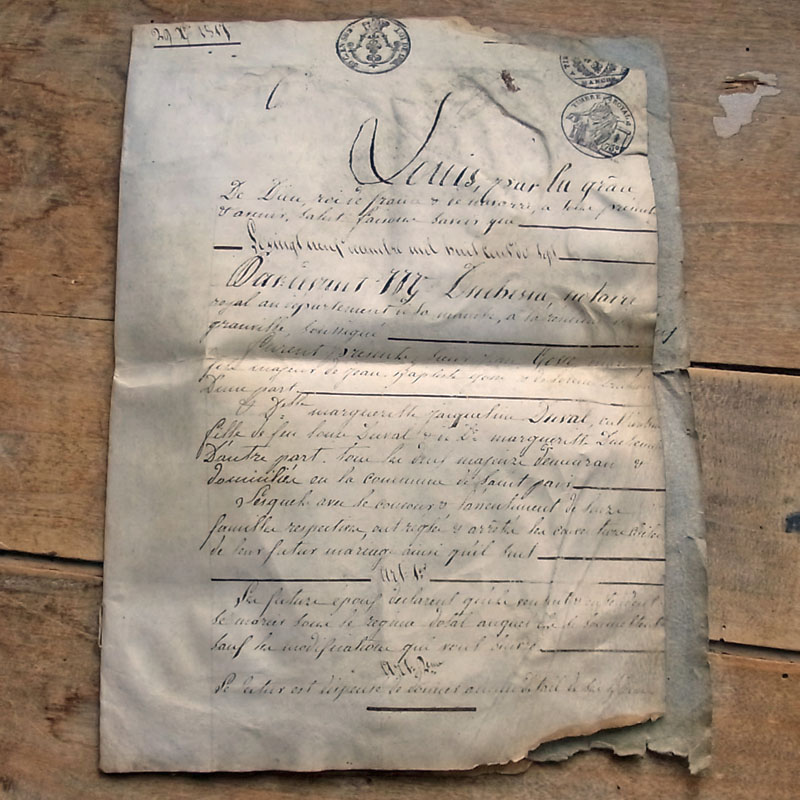 29 9bre 1817
TIMBRE ROYAL
Louis, par la grâce
De Dieu, roi de france & de navarre, à tous présents
& avenir, salut faisons savoir que
Le vingt neuf novembre mil huit cent dix sept
Devant Me Duchesne, notaire
royal au département de la manche, à la résidence de
granville, soussigné
Furent présents, Jean Gosse
fils majeur de jean Baptiste
D'une part
Et Dlle margueritte jacqueline Duval,
fille de feu Louis Duval & de De margueritte
D'autre part. tous les deux majeurs demeurans &
domiciliés en la commune de Saint pair
Lesquels avec le concours & consentement de leurs
familles respectives, ont réglé & arrêté les conventions civiles
de leur futur mariage ainsi qu'il suit
Art 1er
Les futurs époux déclarent qu'ils
se marier sous le régime dotal auquel ils se soumettent
sauf les modifications qui vont suivre
Art. 2eme
Le futur est dispensé de donner aucun détail de